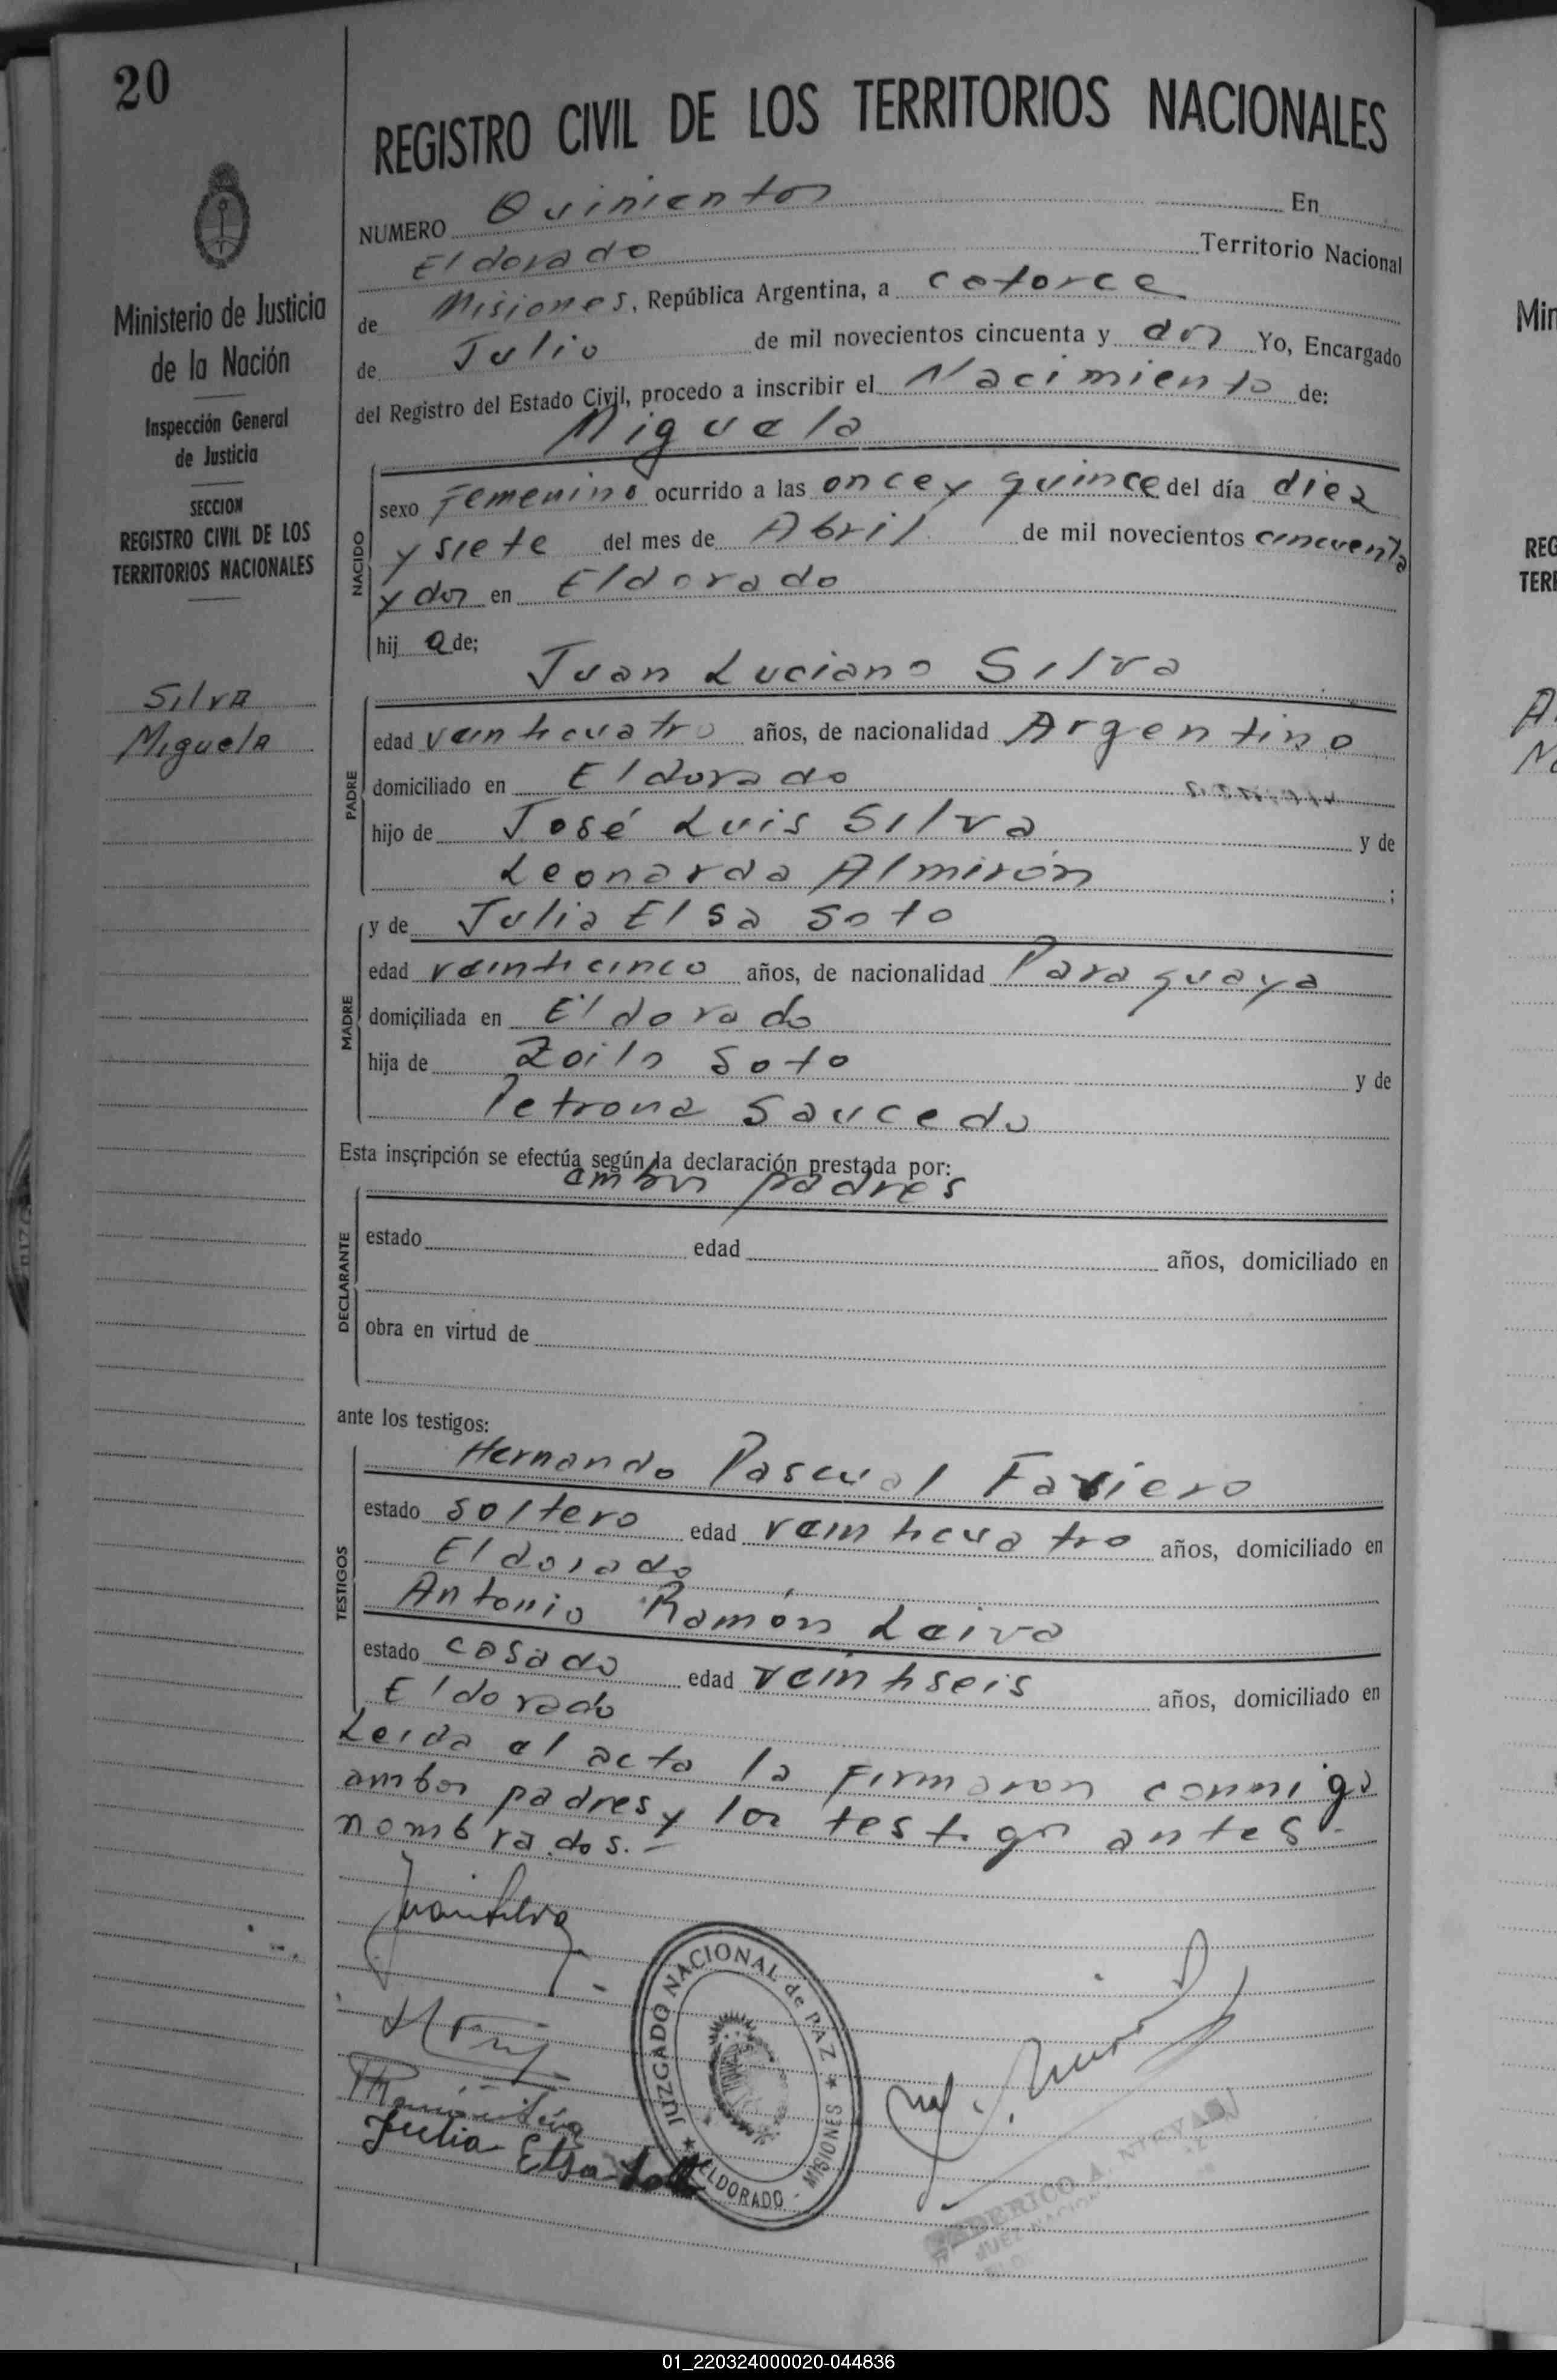 20
Ministerio de Justicia
de la Nación
Inspección General
de Justicia
SECCION
REGISTRO CIVIL DE LOS
TERRITORIOS NACIONALES
Silva
Miguela
REGISTRO CIVIL DE LOS TERRITORIOS NACIONALES
NUMERO Quinientos En
Eldorado Territorio Nacional
de Misiones, República Argentina, a catorce
de Julio de mil novecientos cincuenta y dos Yo, Encargado
del Registro del Estado Civil, procedo a inscribir el Nacimiento de:
Miguela
NACIDO
sexo femenino ocurrido a las once y quince del día diez
y siete del mes de Abril de mil novecientos cincuenta
y dos en Eldorado
hij a de;
Juan Luciano Silva
PADRE
edad veinticuatro años, de nacionalidad Argentino
domiciliado en Eldorado
hijo de José Luis Silva y de
Leonarda Almirón ;
MADRE
y de Julia Elsa Soto
edad veinticinco años, de nacionalidad Paraguaya
domiciliada en Eldorado
hija de Zoilo Soto y de
Petrona Saucedo
Esta inscripción se efectúa según la declaración prestada por:
ambos padres
DECLARANTE
estado edad años, domiciliado en
obra en virtud de
ante los testigos:
TESTIGOS
Hernando Pascual Faviero
estado soltero edad veinticuatro años, domiciliado en
Eldorado
Antonio Ramón Leiva
estado casado edad veintiseis años, domiciliado en
Eldorado
Leida el acta la firmaron conmigo
ambos padres y los testigos antes
nombrados.-
Juan Silva
Ramón Leiva
Julia Elsa Soto
JUZGADO NACIONAL de PAZ
ELDORADO - MISIONES
FEDERICO A. NIEVAS
JUEZ NACIONAL
Min
REG
TERR
01_220324000020-044836